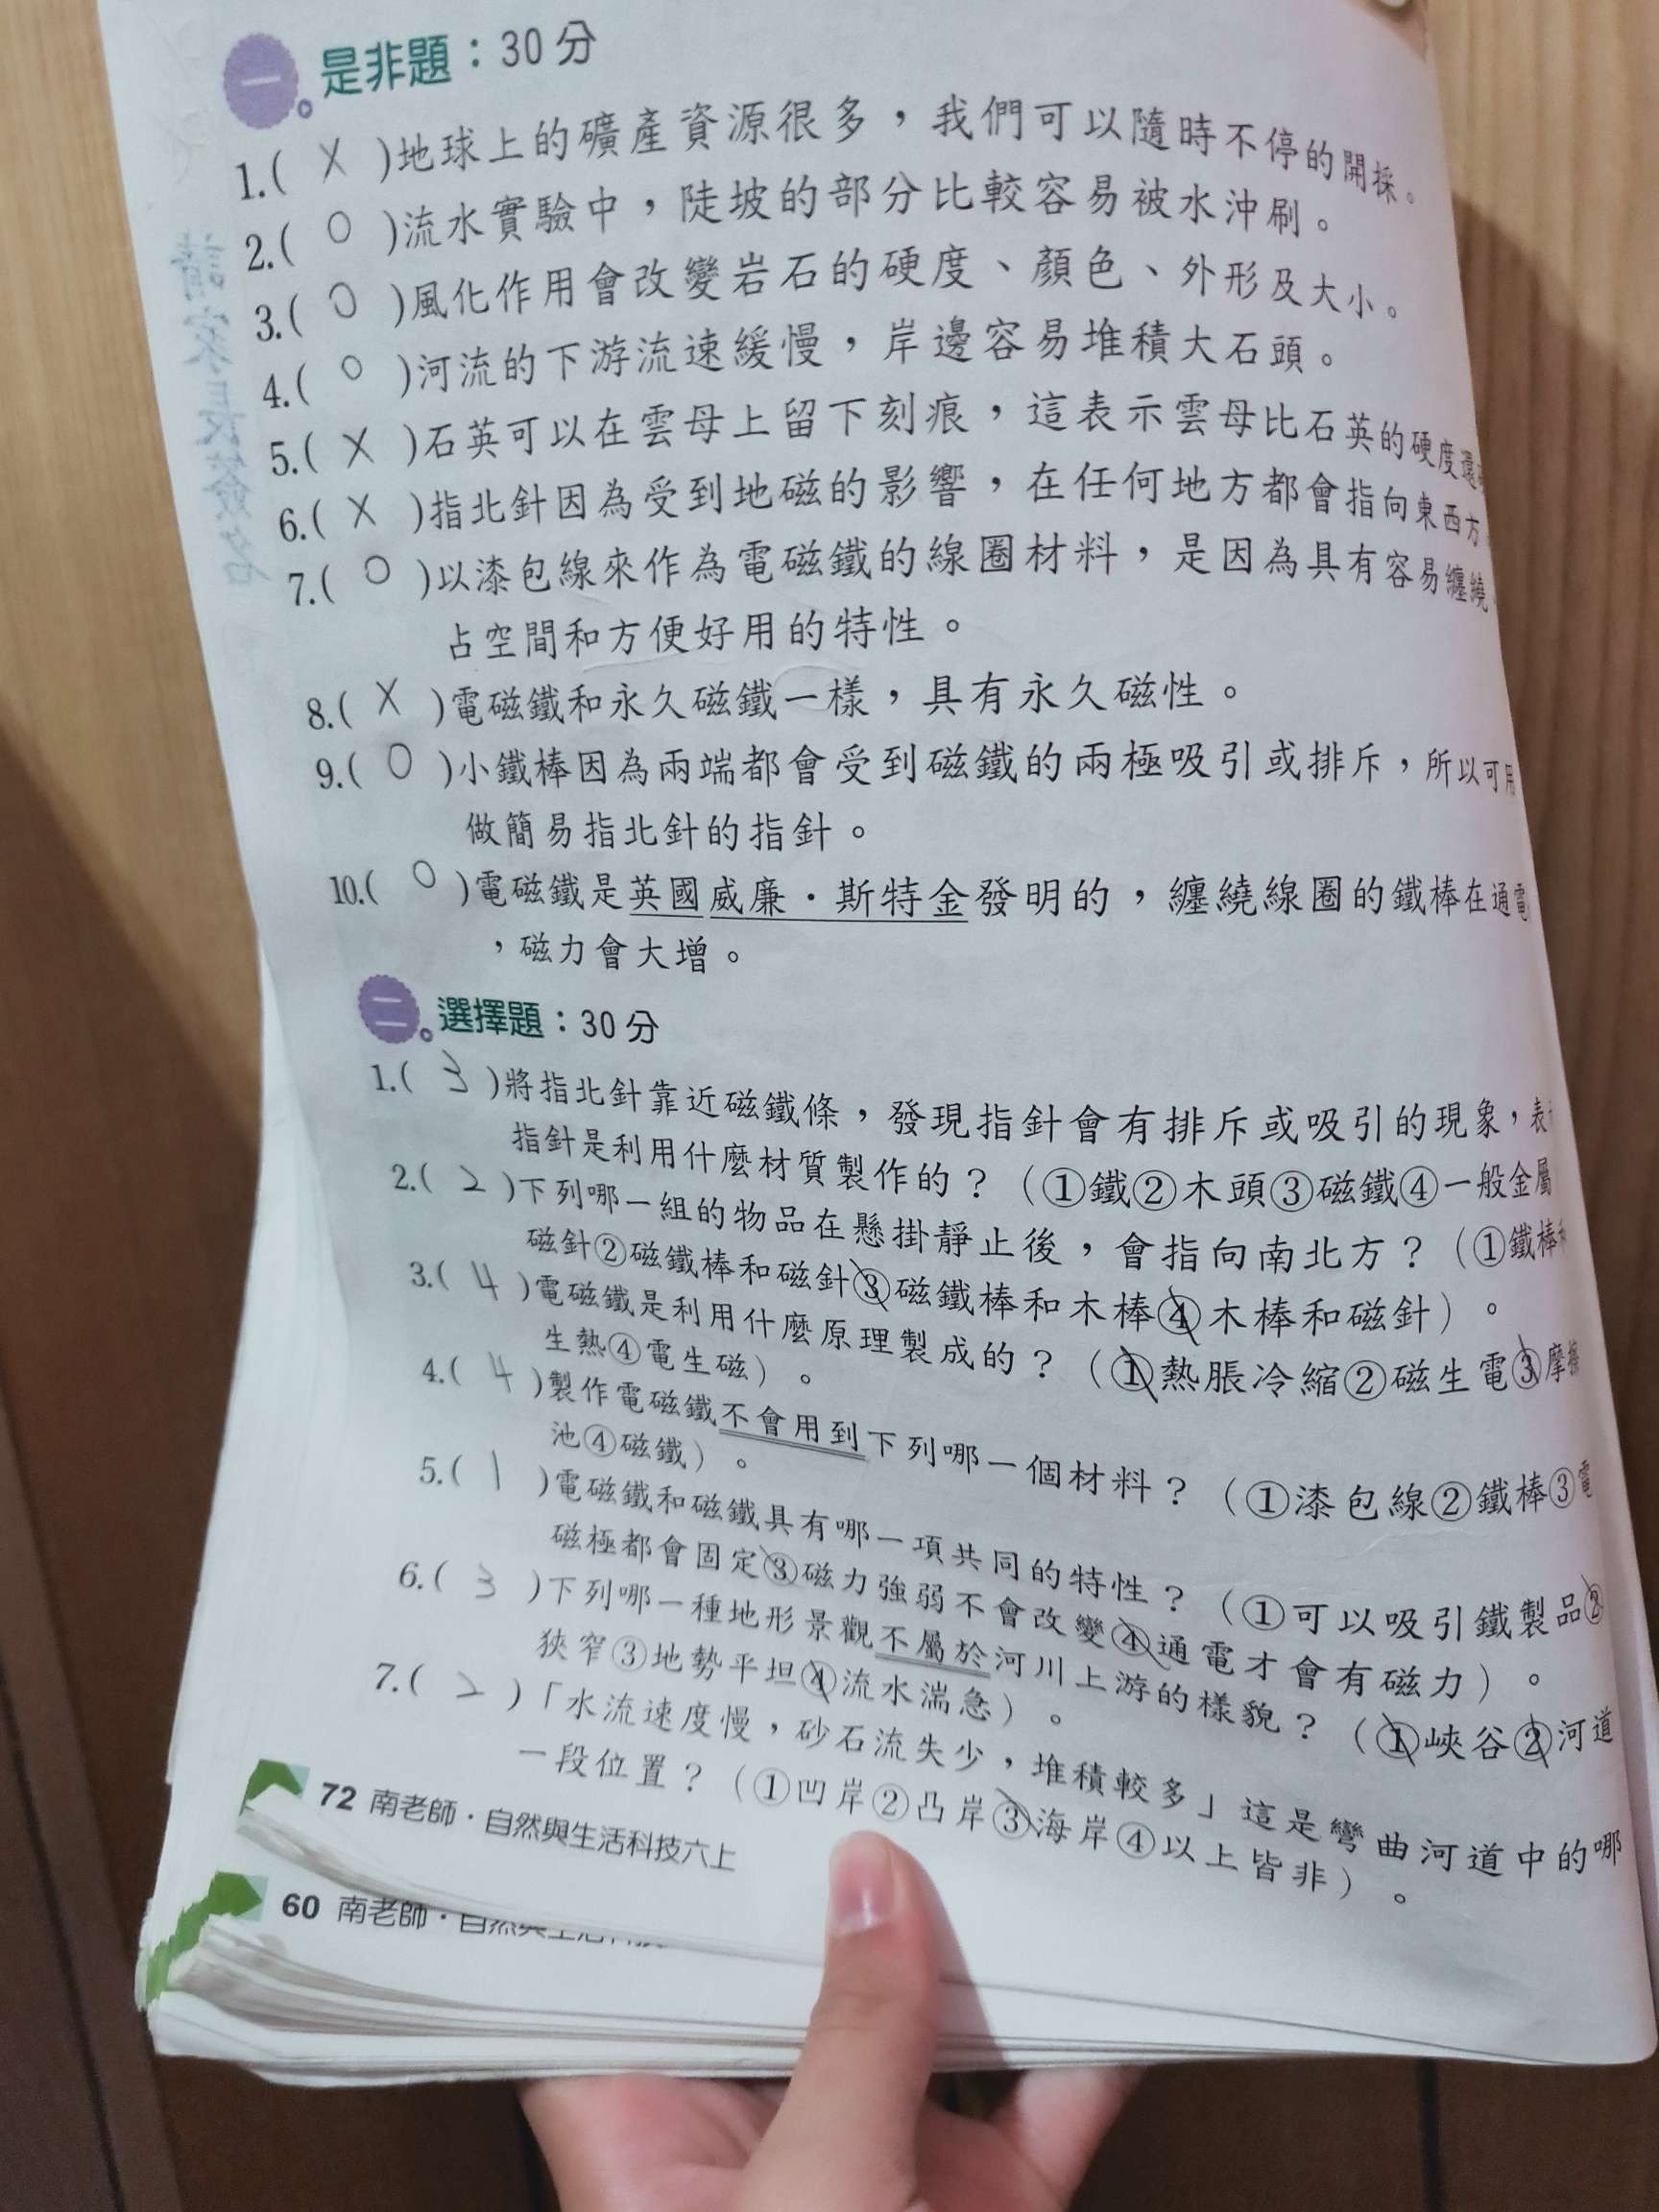 一。是非題：30分
1.( X )地球上的礦產資源很多，我們可以隨時不停的開採。
2.( O )流水實驗中，陡坡的部分比較容易被水沖刷。
3.( O )風化作用會改變岩石的硬度、顏色、外形及大小。
4.( O )河流的下游流速緩慢，岸邊容易堆積大石頭。
5.( X )石英可以在雲母上留下刻痕，這表示雲母比石英的硬度還
6.( X )指北針因為受到地磁的影響，在任何地方都會指向東西方
7.( O )以漆包線來作為電磁鐵的線圈材料，是因為具有容易纏繞
占空間和方便好用的特性。
8.( X )電磁鐵和永久磁鐵一樣，具有永久磁性。
9.( O )小鐵棒因為兩端都會受到磁鐵的兩極吸引或排斥，所以可用
做簡易指北針的指針。
10.( O )電磁鐵是英國威廉·斯特金發明的，纏繞線圈的鐵棒在通電
，磁力會大增。
二。選擇題：30分
1.( 3 )將指北針靠近磁鐵條，發現指針會有排斥或吸引的現象，表
指針是利用什麼材質製作的？（①鐵②木頭③磁鐵④一般金屬
2.( 2 )下列哪一組的物品在懸掛靜止後，會指向南北方？（①鐵棒
磁針②磁鐵棒和磁針③磁鐵棒和木棒④木棒和磁針）。
3.( 4 )電磁鐵是利用什麼原理製成的？（①熱脹冷縮②磁生電③摩擦
生熱④電生磁）。
4.( 4 )製作電磁鐵不會用到下列哪一個材料？（①漆包線②鐵棒③電
池④磁鐵）。
5.( 1 )電磁鐵和磁鐵具有哪一項共同的特性？（①可以吸引鐵製品②
磁極都會固定③磁力強弱不會改變④通電才會有磁力）。
6.( 3 )下列哪一種地形景觀不屬於河川上游的樣貌？（①峽谷②河道
狹窄③地勢平坦④流水湍急）。
7.( 2 )「水流速度慢，砂石流失少，堆積較多」這是彎曲河道中的哪
一段位置？（①凹岸②凸岸③海岸④以上皆非）。
72 南老師·自然與生活科技六上
60 南老師·自然與生活科技